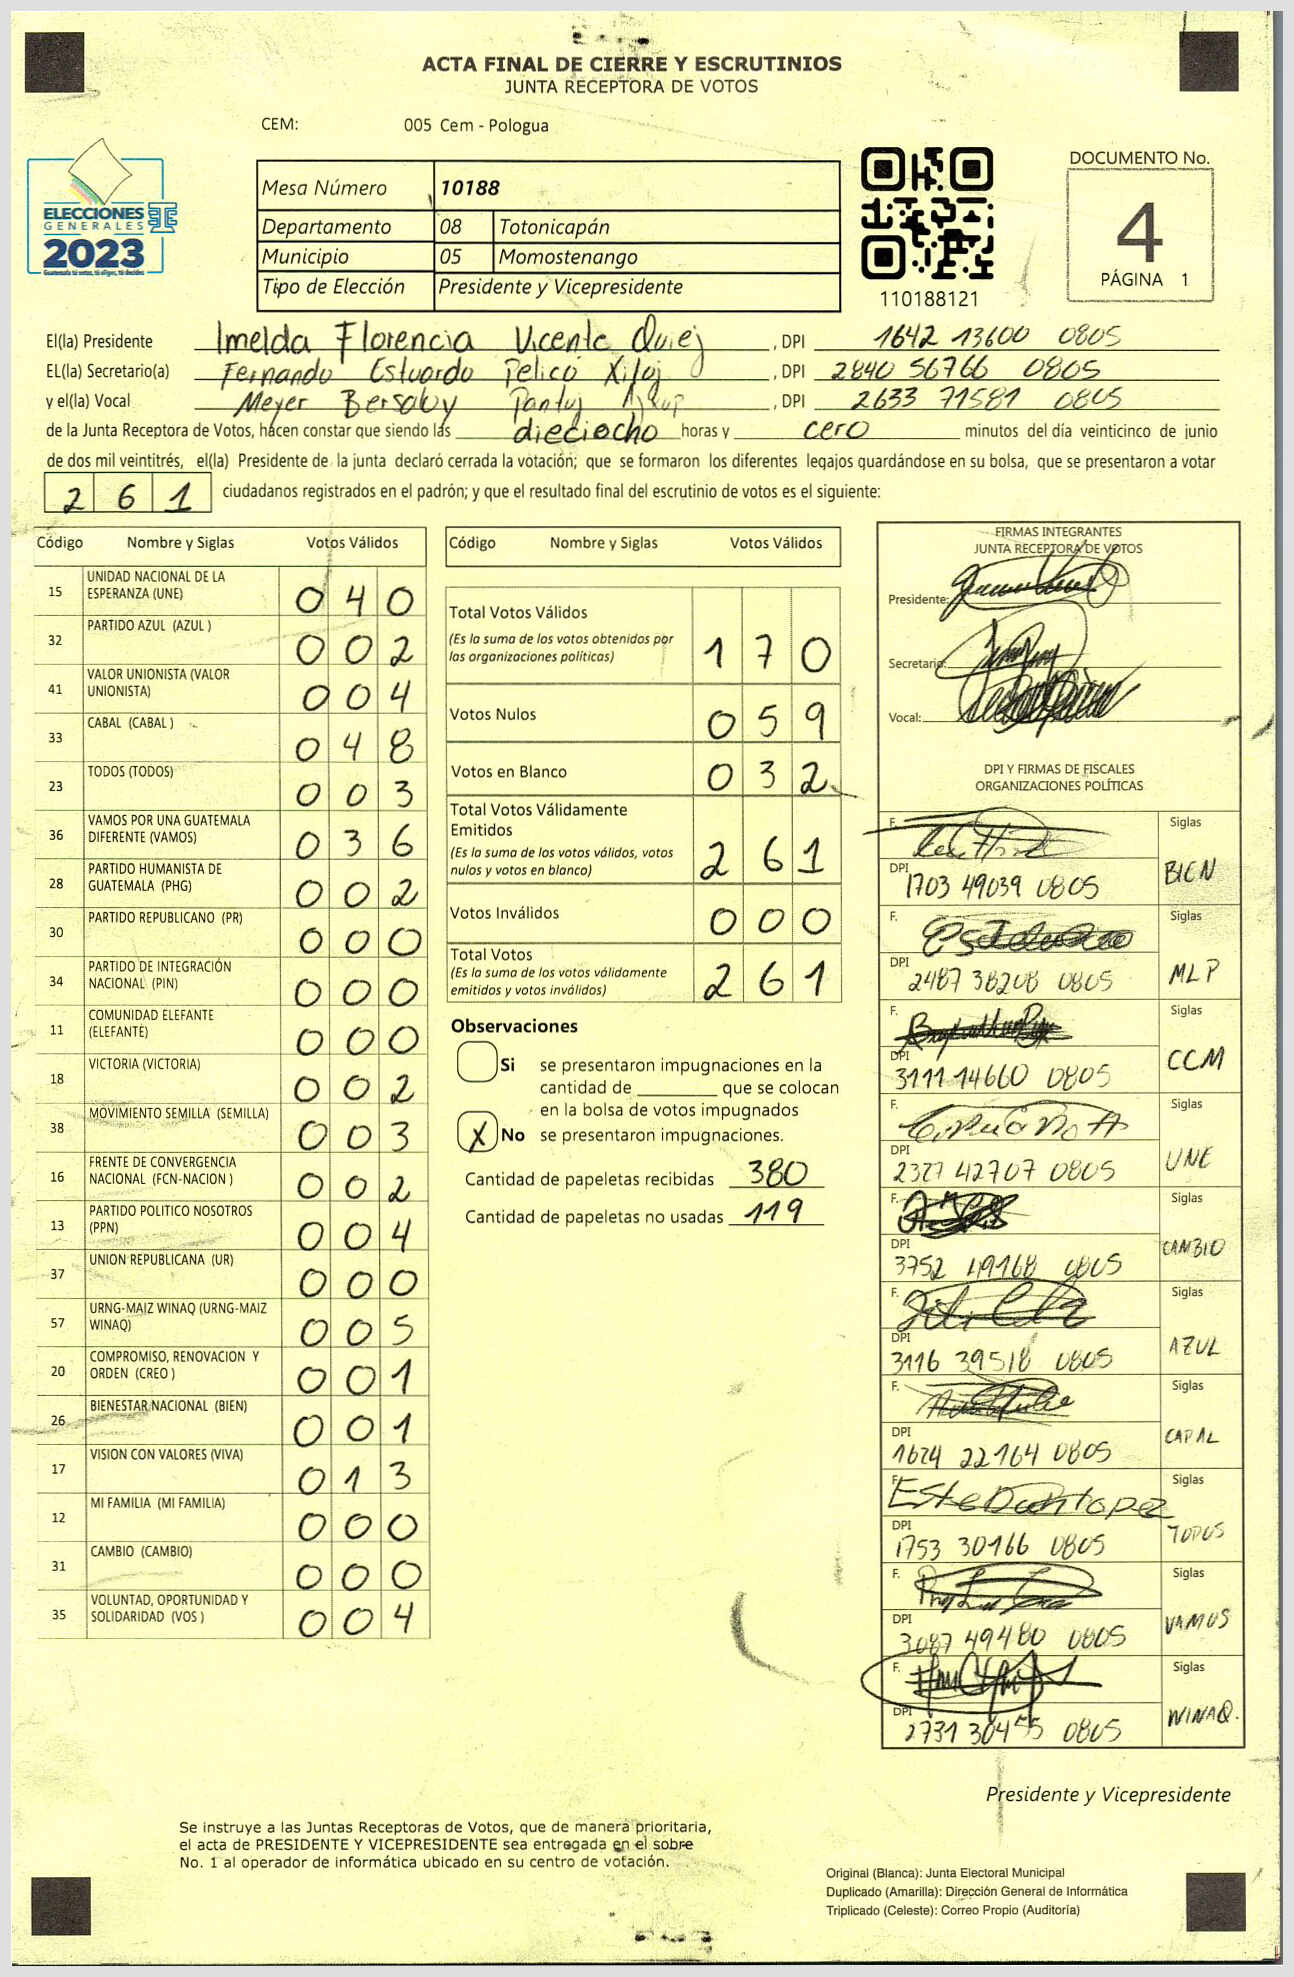 ACTA FINAL DE CIERRE Y ESCRUTINIOS
JUNTA RECEPTORA DE VOTOS
CEM: 005 Cem - Pologua
ELECCIONES
GENERALES
2023
Guatemala tú votas, tú eliges, tú decides
Mesa Número 10188
Departamento 08 Totonicapán
Municipio 05 Momostenango
Tipo de Elección Presidente y Vicepresidente
110188121
DOCUMENTO No.
4
PÁGINA 1
El(la) Presidente Imelda Florencia Vicente Quiej , DPI 1642 13600 0805
EL(la) Secretario(a) Fernando Estuardo Pelicó Xiloj , DPI 2840 56766 0805
y el(la) Vocal Meyer , DPI 2633 71581 0805
de la Junta Receptora de Votos, hacen constar que siendo las dieciocho horas y cero minutos del día veinticinco de junio
de dos mil veintitrés, el(la) Presidente de la junta declaró cerrada la votación; que se formaron los diferentes legajos guardándose en su bolsa, que se presentaron a votar
261 ciudadanos registrados en el padrón; y que el resultado final del escrutinio de votos es el siguiente:
Código Nombre y Siglas Votos Válidos
15 UNIDAD NACIONAL DE LA ESPERANZA (UNE) 040
32 PARTIDO AZUL (AZUL ) 002
41 VALOR UNIONISTA (VALOR UNIONISTA) 004
33 CABAL (CABAL ) 048
23 TODOS (TODOS) 003
36 VAMOS POR UNA GUATEMALA DIFERENTE (VAMOS) 036
28 PARTIDO HUMANISTA DE GUATEMALA (PHG) 002
30 PARTIDO REPUBLICANO (PR) 000
34 PARTIDO DE INTEGRACIÓN NACIONAL (PIN) 000
11 COMUNIDAD ELEFANTE (ELEFANTE) 000
18 VICTORIA (VICTORIA) 002
38 MOVIMIENTO SEMILLA (SEMILLA) 003
16 FRENTE DE CONVERGENCIA NACIONAL (FCN-NACION ) 002
13 PARTIDO POLITICO NOSOTROS (PPN) 004
37 UNION REPUBLICANA (UR) 000
57 URNG-MAIZ WINAQ (URNG-MAIZ WINAQ) 005
20 COMPROMISO, RENOVACION Y ORDEN (CREO ) 001
26 BIENESTAR NACIONAL (BIEN) 001
17 VISION CON VALORES (VIVA) 013
12 MI FAMILIA (MI FAMILIA) 000
31 CAMBIO (CAMBIO) 000
35 VOLUNTAD, OPORTUNIDAD Y SOLIDARIDAD (VOS ) 004
Código Nombre y Siglas Votos Válidos
Total Votos Válidos 170
(Es la suma de los votos obtenidos por
las organizaciones políticas)
Votos Nulos 059
Votos en Blanco 032
Total Votos Válidamente
Emitidos 261
(Es la suma de los votos válidos, votos
nulos y votos en blanco)
Votos Inválidos 000
Total Votos 261
(Es la suma de los votos válidamente
emitidos y votos inválidos)
Observaciones
Si se presentaron impugnaciones en la
cantidad de ________ que se colocan
en la bolsa de votos impugnados
X No se presentaron impugnaciones.
Cantidad de papeletas recibidas 380
Cantidad de papeletas no usadas 119
FIRMAS INTEGRANTES
JUNTA RECEPTORA DE VOTOS
Presidente:
Secretario:
Vocal:
DPI Y FIRMAS DE FISCALES
ORGANIZACIONES POLÍTICAS
F. Siglas
DPI 1703 49039 0805 BIEN
F. Siglas
DPI 2487 38208 0805 MLP
F. Siglas
DPI 3111 14660 0805 CCM
F. Siglas
DPI 2327 42707 0805 UNE
F. Siglas
DPI 3752 49168 0805 CAMBIO
F. Siglas
DPI 3116 39518 0805 AZUL
F. Siglas
DPI 1624 22164 0805 CAPAL
F. Siglas
DPI 1753 30166 0805 TODOS
F. Siglas
DPI 3087 49480 0805 VAMOS
F. Siglas
DPI 2731 30455 0805 WINAQ.
Presidente y Vicepresidente
Se instruye a las Juntas Receptoras de Votos, que de manera prioritaria,
el acta de PRESIDENTE Y VICEPRESIDENTE sea entregada en el sobre
No. 1 al operador de informática ubicado en su centro de votación.
Original (Blanca): Junta Electoral Municipal
Duplicado (Amarilla): Dirección General de Informática
Triplicado (Celeste): Correo Propio (Auditoría)